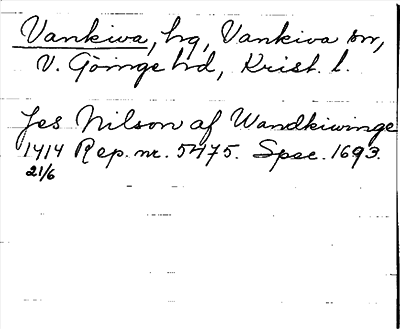 Vankiva, hg, Vankiva sn,
V. Göinge hd, Krist. l.
Jes Nilson af Wandkiwinge
1414 Rep. nr. 5475. Spec. 1693.
21/6